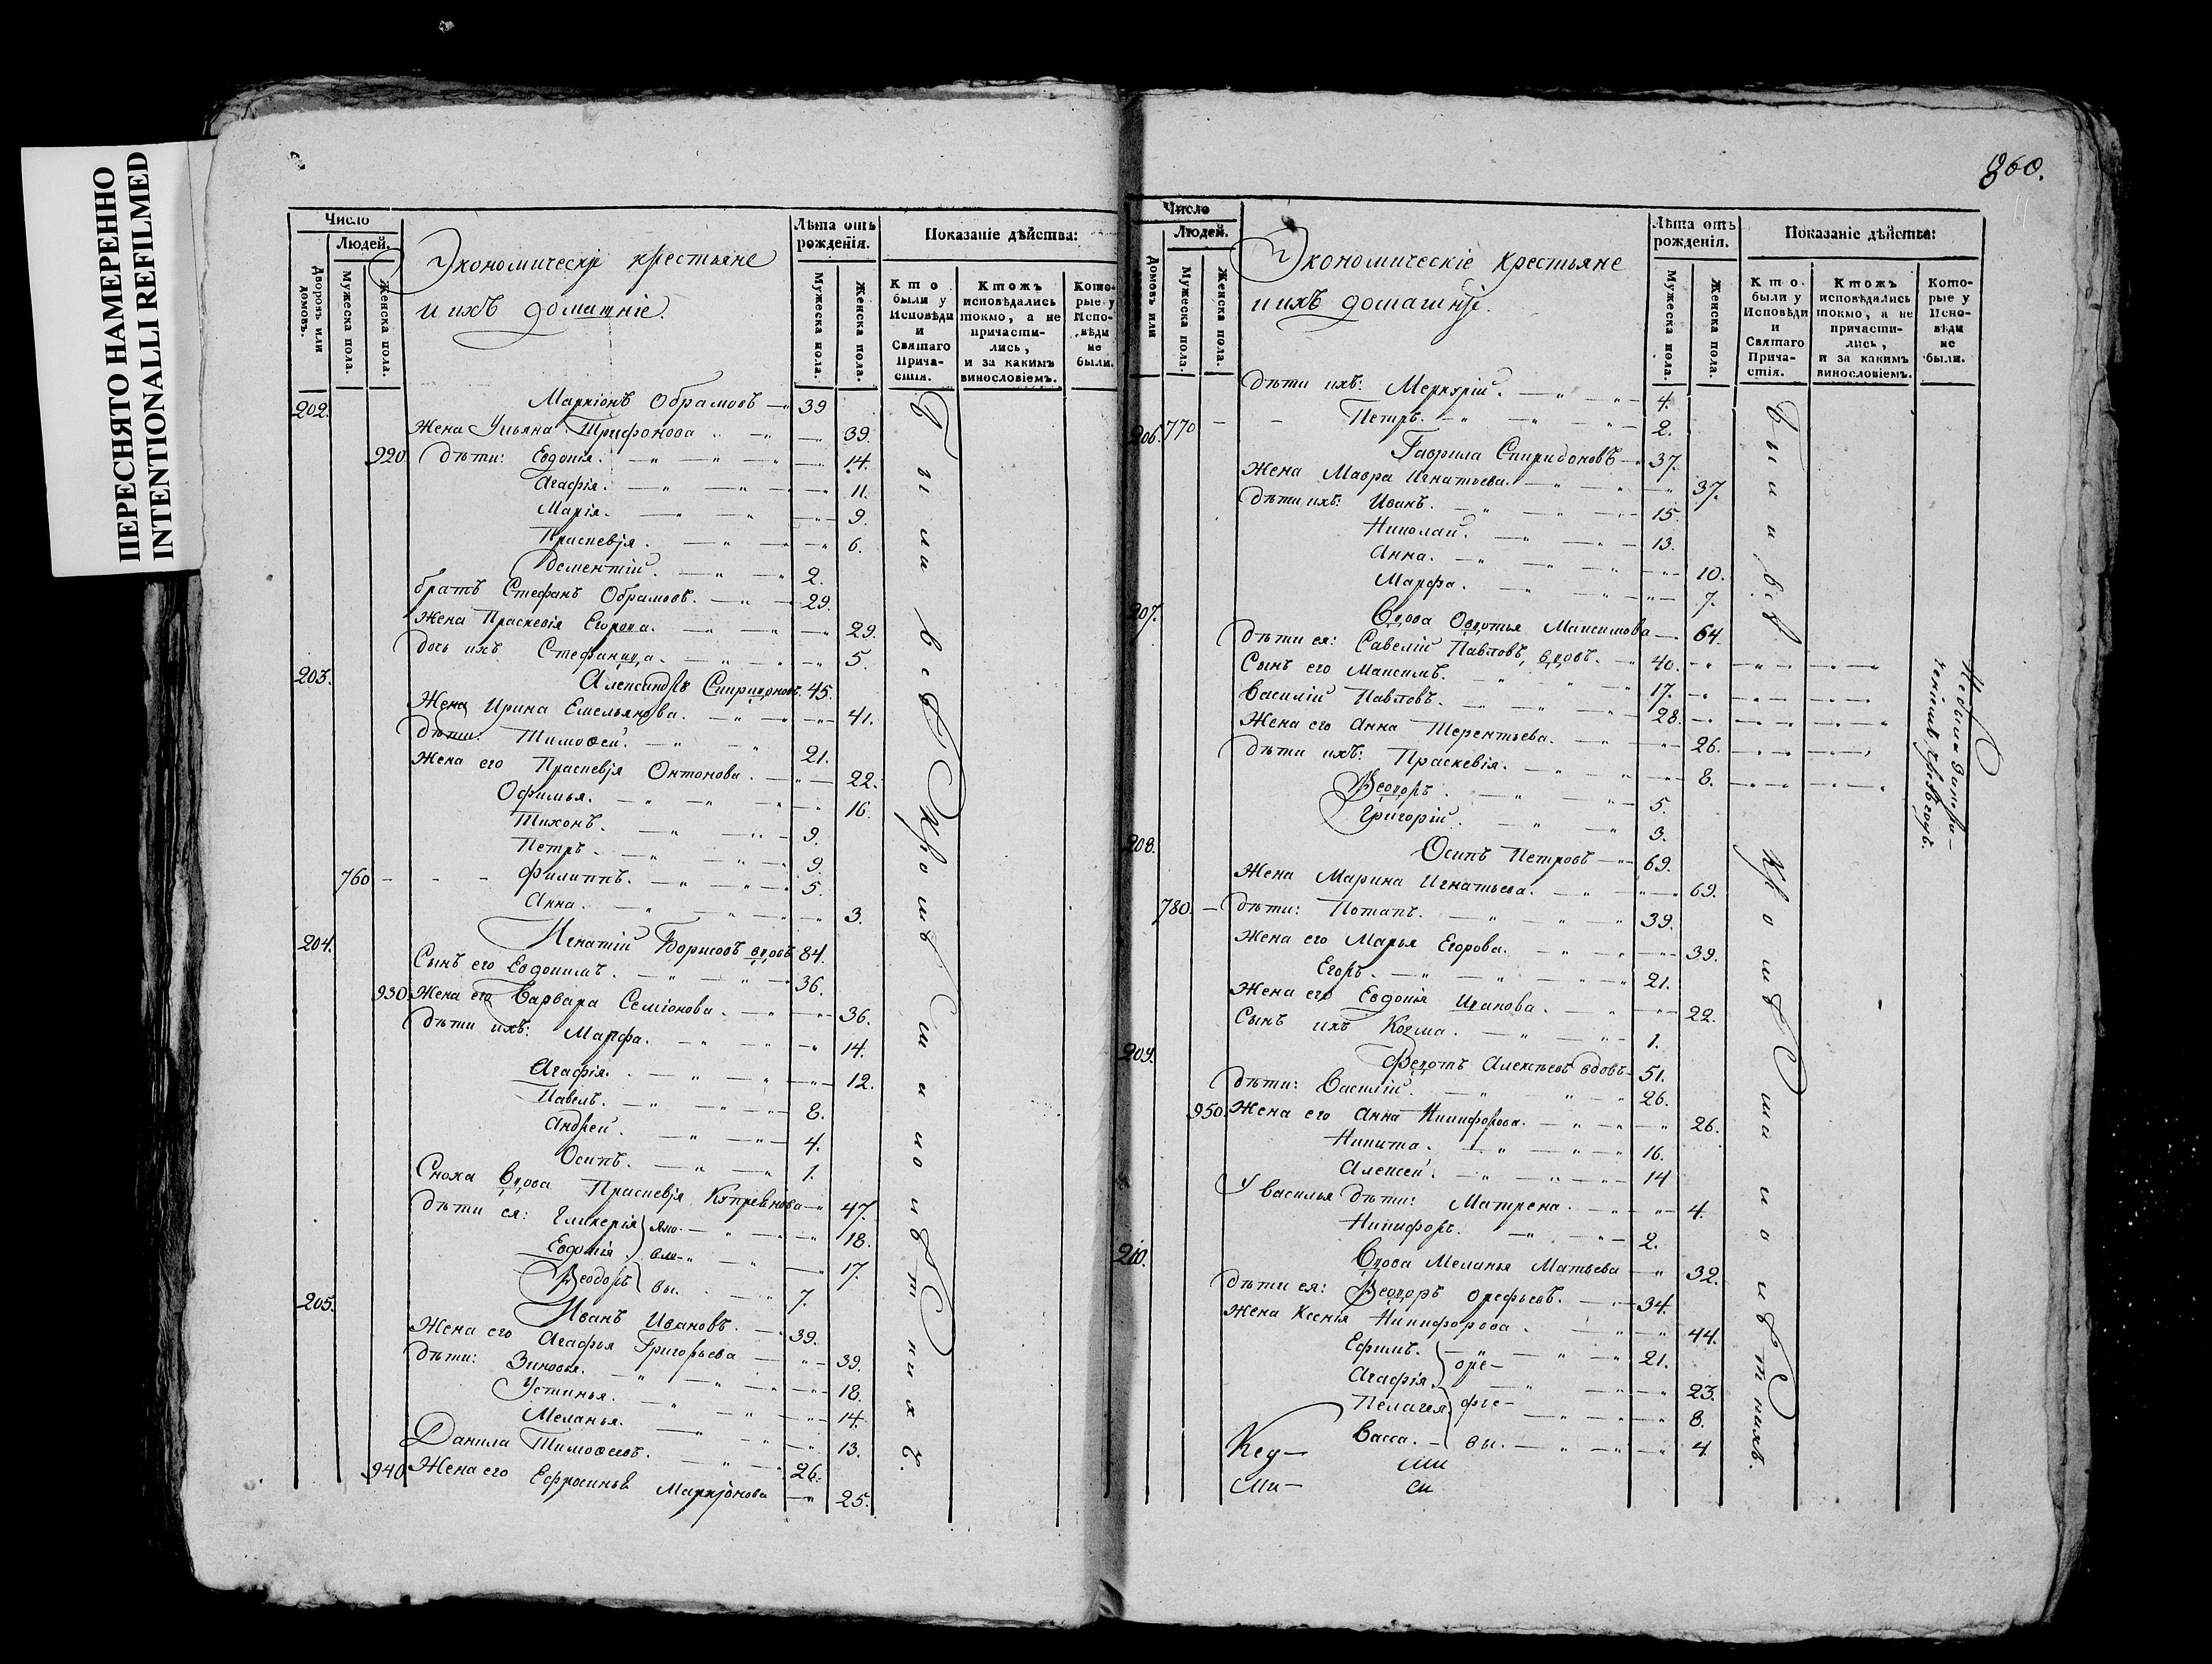 ПЕРЕСНЯТО НАМЕРЕННО
INTENTIONALLI REFILMED
Число
Людей.
Дворовъ или домовъ.
Мужеска пола.
Женска пола.
Экономическіе крестьяне
и ихъ домашніе.
Лѣта отъ рожденія.
Мужеска пола.
Женска пола.
Показаніе дѣйства:
Кто были у Исповѣди и Святаго Причастія.
Ктожъ исповѣдались токмо, а не причастились, и за какимъ винословіемъ.
Которые у Исповѣди не были.
202. Маркіонъ Обрамовъ 39
Жена Ульяна Трифонова 39.
920 Дѣти: Евдокія. 14.
Агафія. 11.
Марія. 9.
Праскевія. 6.
Дементій. 2.
братъ Стефанъ Обрамовъ. 29.
Жена Праскевія Егорова. 29.
дочь ихъ Стефанида. 5.
203. Александръ Спиридоновъ. 45.
Жена Ирина Емельянова. 41.
дѣти: Тимоѳей. 21.
Жена его Праскевія Онтонова. 22.
Офимья. 16.
Тихонъ. 9.
Петръ. 9.
760 Филиппъ. 5.
Анна. 3.
204. Игнатій Борисовъ вдовъ 84.
Сынъ его Евдокимъ. 36.
930 Жена его Варвара Семіонова. 36.
дѣти ихъ: Марфа. 14.
Агафія. 12.
Павелъ. 8.
Андрей. 4.
Осипъ. 1.
Сноха вдова Праскевія Купреянова 47.
дѣти ея: Гликерія Яко- 18.
Евдокія вле- 17.
Ѳеодоръ вы. 7.
205. Иванъ Ивановъ. 39.
Жена его Агафья Григорьева 39.
дѣти: Зиновья. 18.
Устинья. 14.
Меланья. 13.
Данила Тимоѳеевъ. 26.
940 Жена его Ефросинья Маркіонова 25.
Были всѣ кромѣ малолѣтнихъ.
860.
Число
Людей.
домовъ или
Мужеска пола.
Женска пола.
Экономическіе крестьяне
и ихъ домашніе.
Лѣта отъ рожденія.
Мужеска пола.
Женска пола.
Показаніе дѣйства:
Кто были у Исповѣди и Святаго Причастія.
Ктожъ исповѣдались токмо, а не причастились, и за какимъ винословіемъ.
Которые у Исповѣди не были.
дѣти ихъ: Меркурій. 4.
770 Петръ. 2.
206. Гаврила Спиридоновъ 37.
Жена Мавра Игнатьева. 37.
Дѣти ихъ: Иванъ. 15.
Николай. 13.
Анна. 10.
Марфа. 7.
207. Вдова Овдотья Максимова 64.
дѣти ея: Савелій Павловъ, вдовъ. 40.
Сынъ его Максимъ. 17.
Василій Павловъ. 28.
Жена его Анна Терентьева. 26.
дѣти ихъ: Праскевія. 8.
Ѳеодоръ. 5.
Григорій. 3.
208. Осипъ Петровъ 69.
Жена Марина Игнатьева. 69.
780. дѣти: Потапъ. 39.
Жена его Марья Егорова. 39.
Егоръ. 21.
Жена его Евдокія Иванова. 22.
Сынъ ихъ Козма. 1.
209. Федотъ Алексѣевъ вдовъ 51.
дѣти: Василій. 26.
950. Жена его Анна Никифорова. 26.
Никита. 16.
Алексей. 14
У Василья дѣти: Матрена. 4.
Никифоръ. 2.
210. Вдова Меланья Матвеева 32.
дѣти ея: Ѳеодоръ Орефьевъ. 34.
Жена Ксенья Никифорова. 44.
Ефимъ. оре- 21.
Агафія. 23.
Пелагея фье- 8.
Васса. вы. 4
Были всѣ кромѣ малолѣтнихъ.